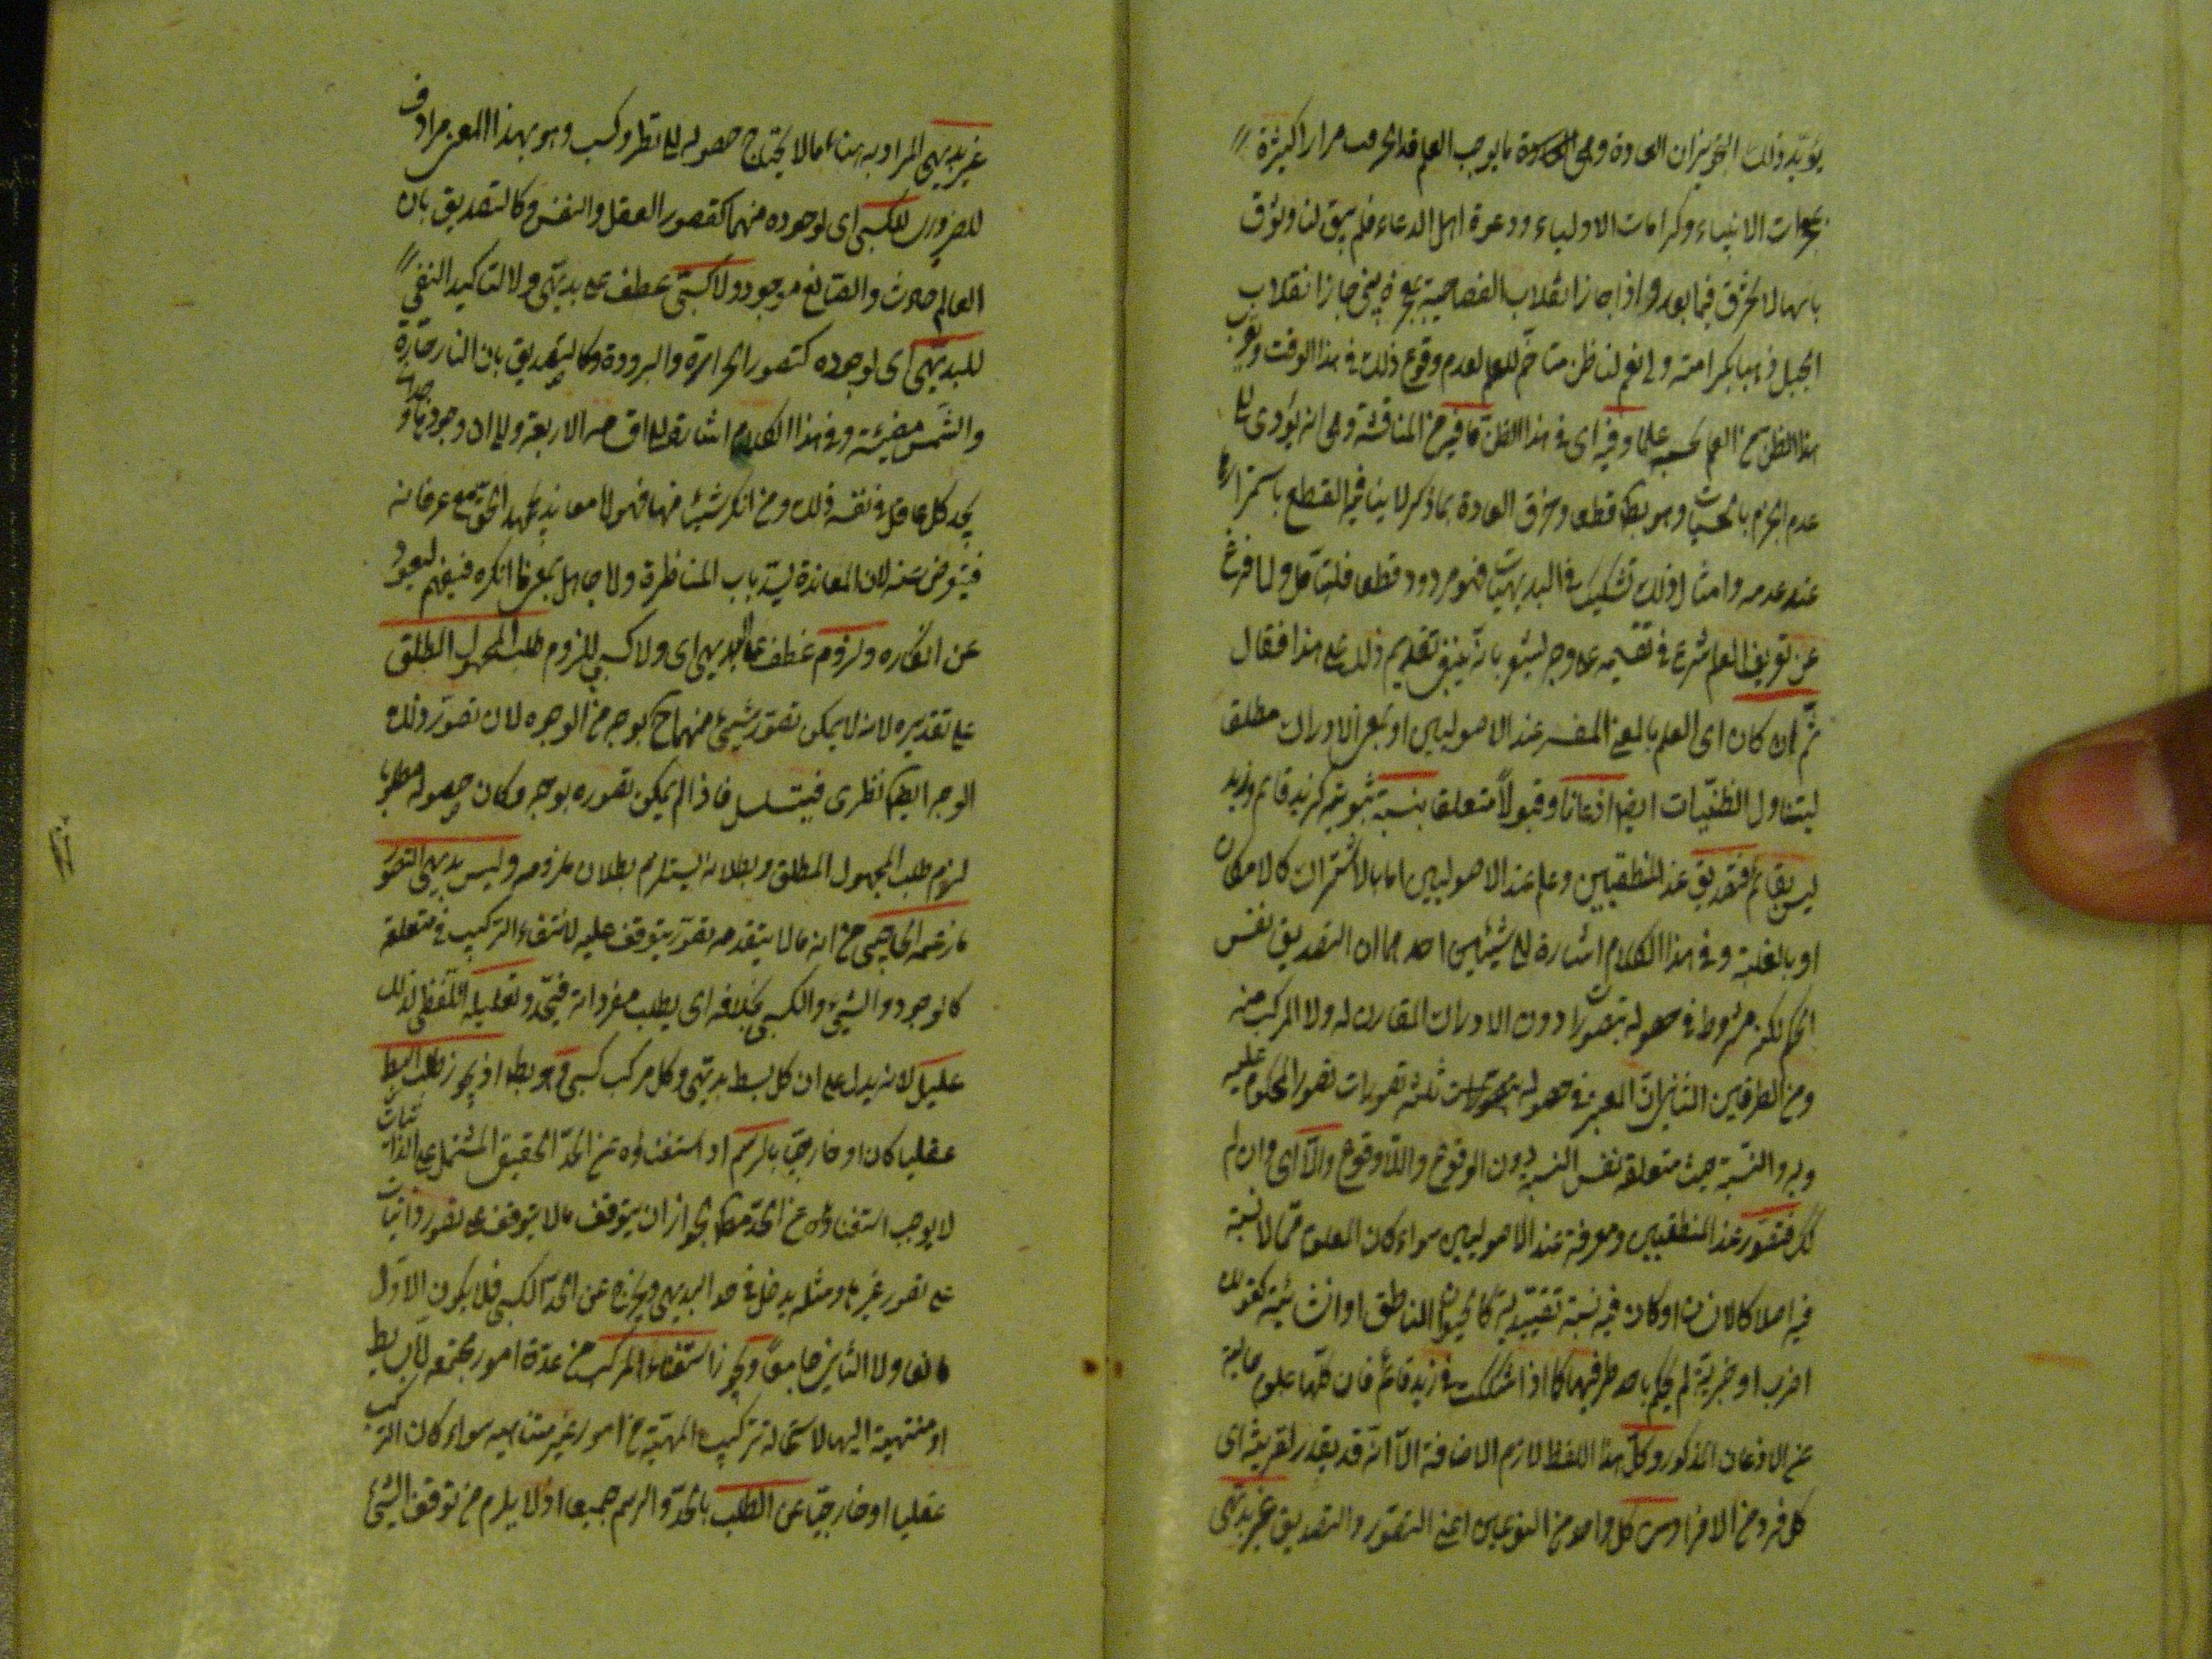 يؤيد ذلك التجويز ان العادة وهي ما يوجب العلم قد انخرقت مرارا كثيرة
الانبياء وكرامات الاولياء ودعوة اهل الدعاء فلم يبق لنا وثوق
بانها لا تخرق فيما بعد واذا جاز انقلاب العصا حية جاز انقلاب
الجبل ذهبا بكرامته نعم لنا ظن متاخم للعلم لعدم وقوع ذلك في هذا الوقت
هذا الظن علما وفيه اى في هذا الظن ما فيه من المناقشة وهى انه يؤدى الى
عدم الجزم بالحسيات وهو بط قطعا وخرق العادة بما ذكر لا ينافى القطع باستمرارها
عند عدمه وامثال ذلك تشكيك في البديهيات فهو مردود قطعا فليتأمل ولما فرغ
عن تعريف العلم شرع في تقسيمه على وجه يشعر بانه ينبغى تقديم ذلك على هذا فقال
ثم ان كان اى العلم بالمعنى المفسر عند الاصوليين او بمعنى الادراك مطلقا
ليتناول الظنيات ايضا اذعانا وقبولا متعلقا بنسبة ثبوتية كزيد قائم وزيد
ليس بقائم فتصديق عند المنطقيين وعلم عند الاصوليين اما بالاشتراك كالامكان
او بالغلبة وفي هذا الكلام اشارة الى شيئين احدهما ان التصديق نفس
الحكم لكنه مشروط في حصوله بتصورات دون الادراك المقارن له ولا المركب منه
ومن الطرفين الثانى ان المعتبر في حصوله ثلثة تصورات تصور المحكوم عليه
وبه والنسبة حيث متعلقه نفس النسبة بدون الوقوع واللاوقوع والا اى وان لم
يكن فتصور عند المنطقيين ومعرفة عند الاصوليين سواء كان المعلوم مما لا نسبة
فيه اصلا كالانسان او كان فيه نسبة تقييدية كالحيوان الناطق او انشائية كقولك
اضرب او خبرية لم يحكم باحد طرفيها كما اذا شككت في زيد قائم فان كلها علوم خالية
عن الاذعان المذكور وكل هذا اللفظ لازم الاضافة الا انه قد يقدر لقرينة اى
كل فرد من الافراد من كل واحد من النوعين اعنى التصور والتصديق غير بديهى
غير بديهى المراد به هنا ما لا يحتاج حصوله الى نظر وكسب وهو بهذا المعنى مرادف
للضرورى للكسبى اى لوجوده منهما كتصور العقل والنفس وكالتصديق بان
العالم حادث والصانع موجود ولا كسبى عطف على بديهى ولا لتاكيد النفى
للبديهى اى لوجوده كتصور الحرارة والبرودة وكالتصديق بان النار حارة
والشمس مضيئة وفي هذا الكلام اشارة الى اقسامه الاربعة والى ان وجود
يجد كل عاقل في نفسه ذلك ومن انكر شيئا منها فهو اما معاند يجحد الحق مع عرفانه
فيعرض عنه لان المعاندة ليست باب المناظرة واما جاهل بمعنى ما انكره فيفهم ليعود
عن انكاره ولزوم عطف على البديهى اى ولا كسبى للزوم طلب المجهول المطلق
على تقديره لانه لا يمكن تصور شيئ منهما ح بوجه من الوجوه لان تصور ذلك
الوجه ايضا نظرى فيتسلسل فاذا لم يمكن تصوره بوجه وكان حصوله
لزم طلب المجهول المطلق وبطلانه يستلزم بطلان ملزومه وليس بديهى التصور
ما زعمه الحاجبى من انه ما لا يتقدمه تصور يتوقف عليه لانتفاء التركيب في متعلقه
كالوجود والشيئ والكسبى بخلافه اى يطلب مفرداته فيحد وتعليله اللفظى لذلك
عليل لانه يدل على ان كل بسيط بديهى وكل مركب كسبى وهو بط اذ يجوز طلب البسيط
عقليا كان او خارجيا بالرسم اذ استغناؤه عن الحد الحقيقى المشتمل على الذاتيات
لا يوجب استغناؤه عن الحد مطلقا لجواز ان يتوقف ما لا يتوقف على تصور ذاتياته
على تصور غيرها ومثله يدخل في حد البديهى ويخرج عن الحد الكسبى فلا يكون الاول
مانعا ولا الثانى جامعا ويجوز استغناء المركب من عدة امور مجتمعة
او منتهية اليها لاستحالة تركيب المهية من امور غير متناهية سواء كان التركيب
عقليا او خارجيا عن الطلب بالحد والرسم جميعا اذ لا يلزم من توقف الشيئ